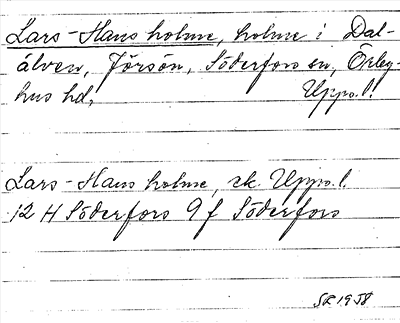 Lars-Hans holme, holme i Dal-
älven, Jörsön, Söderfors sn, Örby-
hus hd, Upps.l.
Lars-Hans holme, ek. Upps.l.
12 H Söderfors 9 f Söderfors
SR 1958